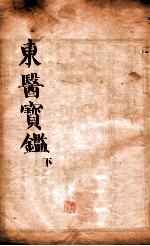 東醫寶鑑
下